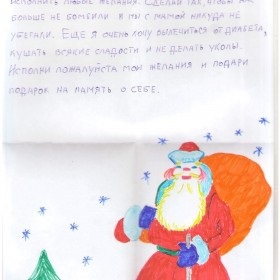 исполнить любые желания. Сделай так, чтобы нас
больше не бомбили и мы с мамой никуда не
убегали. Ещё я очень хочу вылечиться от диабета,
кушать всякие сладости и не делать уколы.
Исполни пожалуйста мои желания и подари
подарок на память о себе.